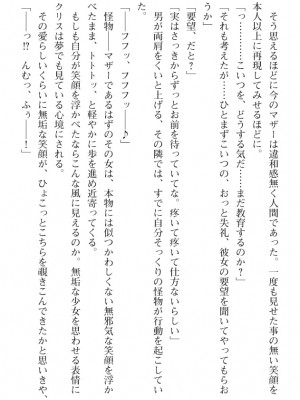 そう思えるほどに今のマザーは違和感無く人間であった。一度も見せた事の無い笑顔を
本人以上に再現してみせるほどに。
「っ……こいつを、どうする気だ……まだ教育するのか？」
「それも考えたが……ひとまずこいつの、おっと失礼、彼女の要望を聞いてやってもらお
うか」
「要望、だと？」
「実はさっきからずっとお前を待っていてな。疼いて疼いて仕方ないらしい」
男が両肩をくいと上げる、その隣では、すでに自分そっくりの怪物が行動を起こしてい
た。
「――フフッ、フフフッ――♪」
怪物――マザーであるはずのその女は、本物には似つかわしくない無邪気な笑顔を浮か
べたまま、トトトッ、と軽やかに歩を進め近寄ってくる。
もしも自分が笑顔を浮かべたならこんな風に見えるのか。無垢な少女を思わせる表情に
クリスは夢でも見ている心境にされる。
その愛らしいくらいに無垢な笑顔が、ひょこっとこちらを覗きこんできたかと思いきや、
「――っ!?　んむっ、ふぅ――！」